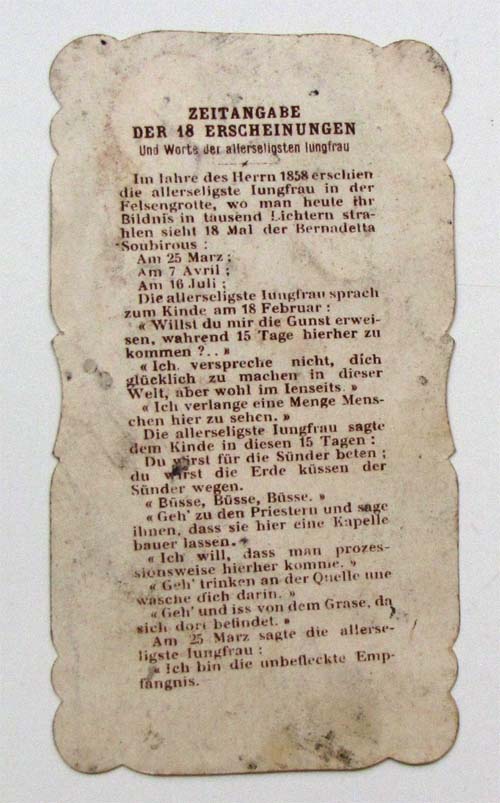 ZEITANGABE
DER 18 ERSCHEINUNGEN
Und Worte der allerseligsten Iungfrau
Im Iahre des Herrn 1858 erschien
die allerseligste Iungfrau in der
Felsengrotte, wo man heute ihr
Bildnis in tausend Lichtern stra-
hlen sieht 18 Mal der Bernadetta
Soubirous :
Am 25 Marz ;
Am 7 Avril ;
Am 16 Juli ;
Die allerseligste Iungfrau sprach
zum Kinde am 18 Februar :
« Willst du mir die Gunst erwei-
sen, wahrend 15 Tage hierher zu
kommen ?.. »
« Ich verspreche nicht, dich
glücklich zu machen in dieser
Welt, aber wohl im Ienseits. »
« Ich verlange eine Menge Mens-
chen hier zu sehen. »
Die allerseligste Iungfrau sagte
dem Kinde in diesen 15 Tagen :
Du wirst für die Sünder beten ;
du wirst die Erde küssen der
Sünder wegen.
« Büsse, Büsse, Büsse. »
« Geh' zu den Priestern und sage
ihnen, dass sie hier eine Kapelle
bauer lassen. »
« Ich will, dass man prozes-
sionsweise hierher komme. »
« Geh' trinken an der Quelle une
wasche dich darin. »
« Geh' und iss von dem Grase, da
sich dort befindet. »
Am 25 Marz sagte die allerse-
ligste Iungfrau :
« Ich bin die unbefleckte Emp-
fängnis.